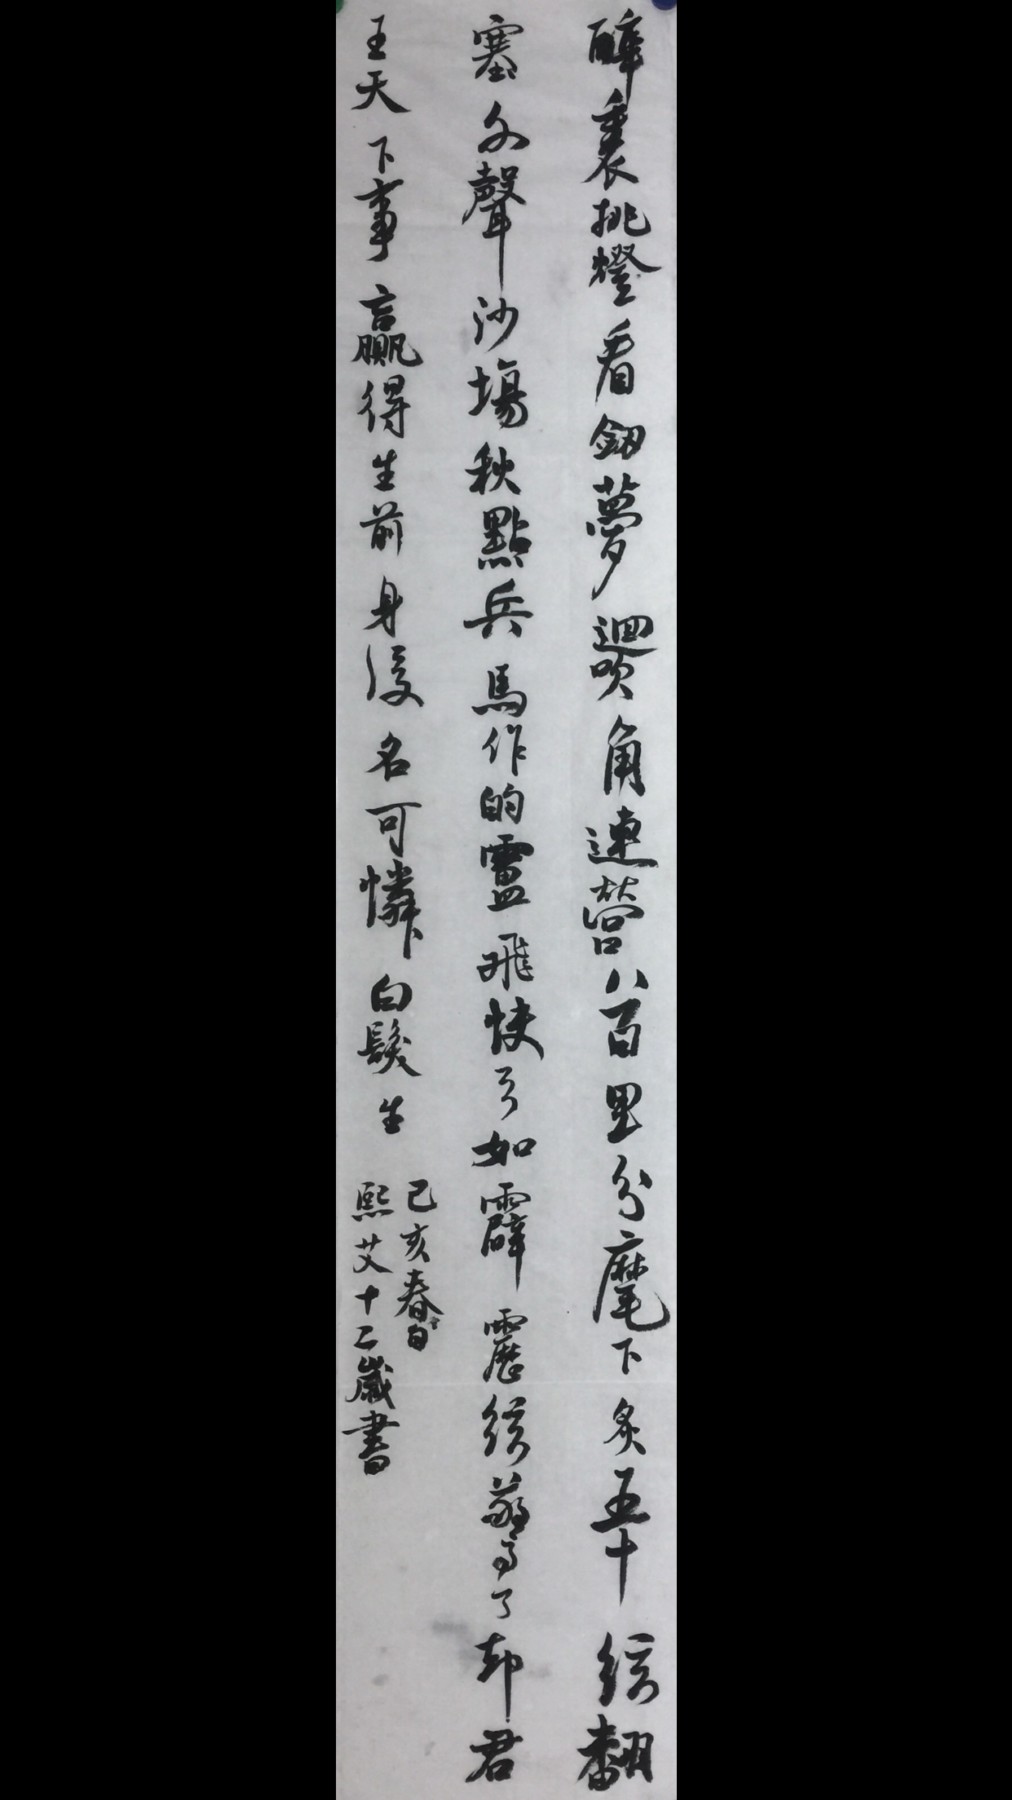 醉裏挑燈看劍夢迴吹角連營八百里分麾下炙五十絃翻
塞外聲沙場秋點兵馬作的盧飛快弓如霹靂絃驚了却君
王天下事贏得生前身後名可憐白髮生
己亥春日
熙艾十二歲書